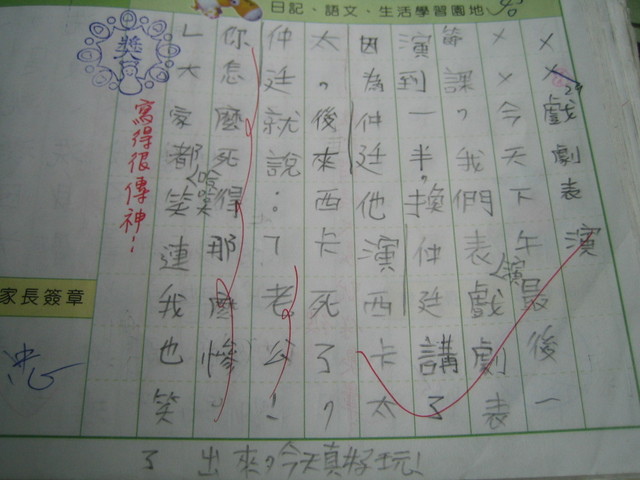 日記、語文、生活學習園地
××戲劇表演
××今天下午最後一
節課，我們表演戲劇表
演到一半，換仲廷講了
因為仲廷他演西卡太
太，後來西卡死了，
仲廷就說：「老公！
你怎麼死得那麼慘。
」大家都哈哈笑連我也笑
了出來，今天真好玩！
寫得很傳神！
獎
家長簽章